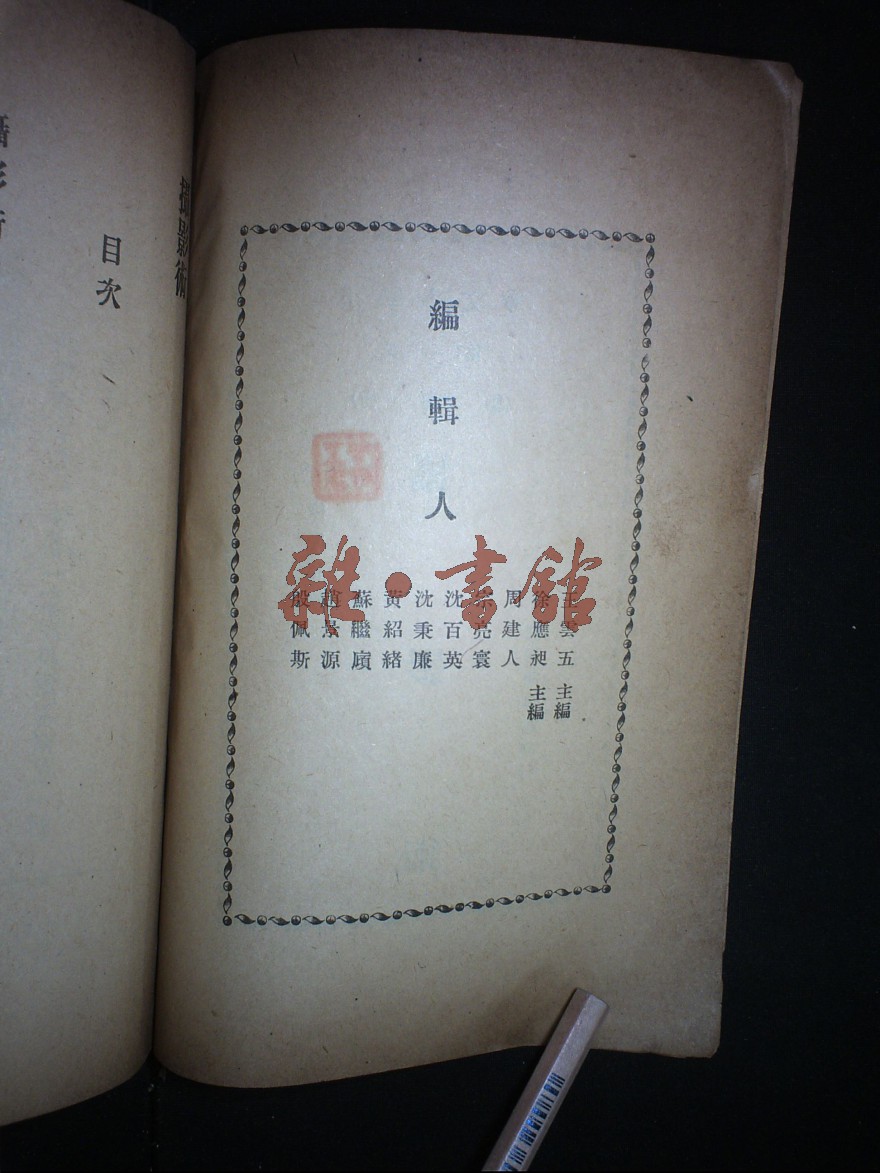 編輯人
王雲五 主編
徐應昶 主編
周建人
宗亮寰
沈百英
沈秉廉
黃紹緒
蘇繼廎
趙景源
殷佩斯
雜·書館
攝影術
目次